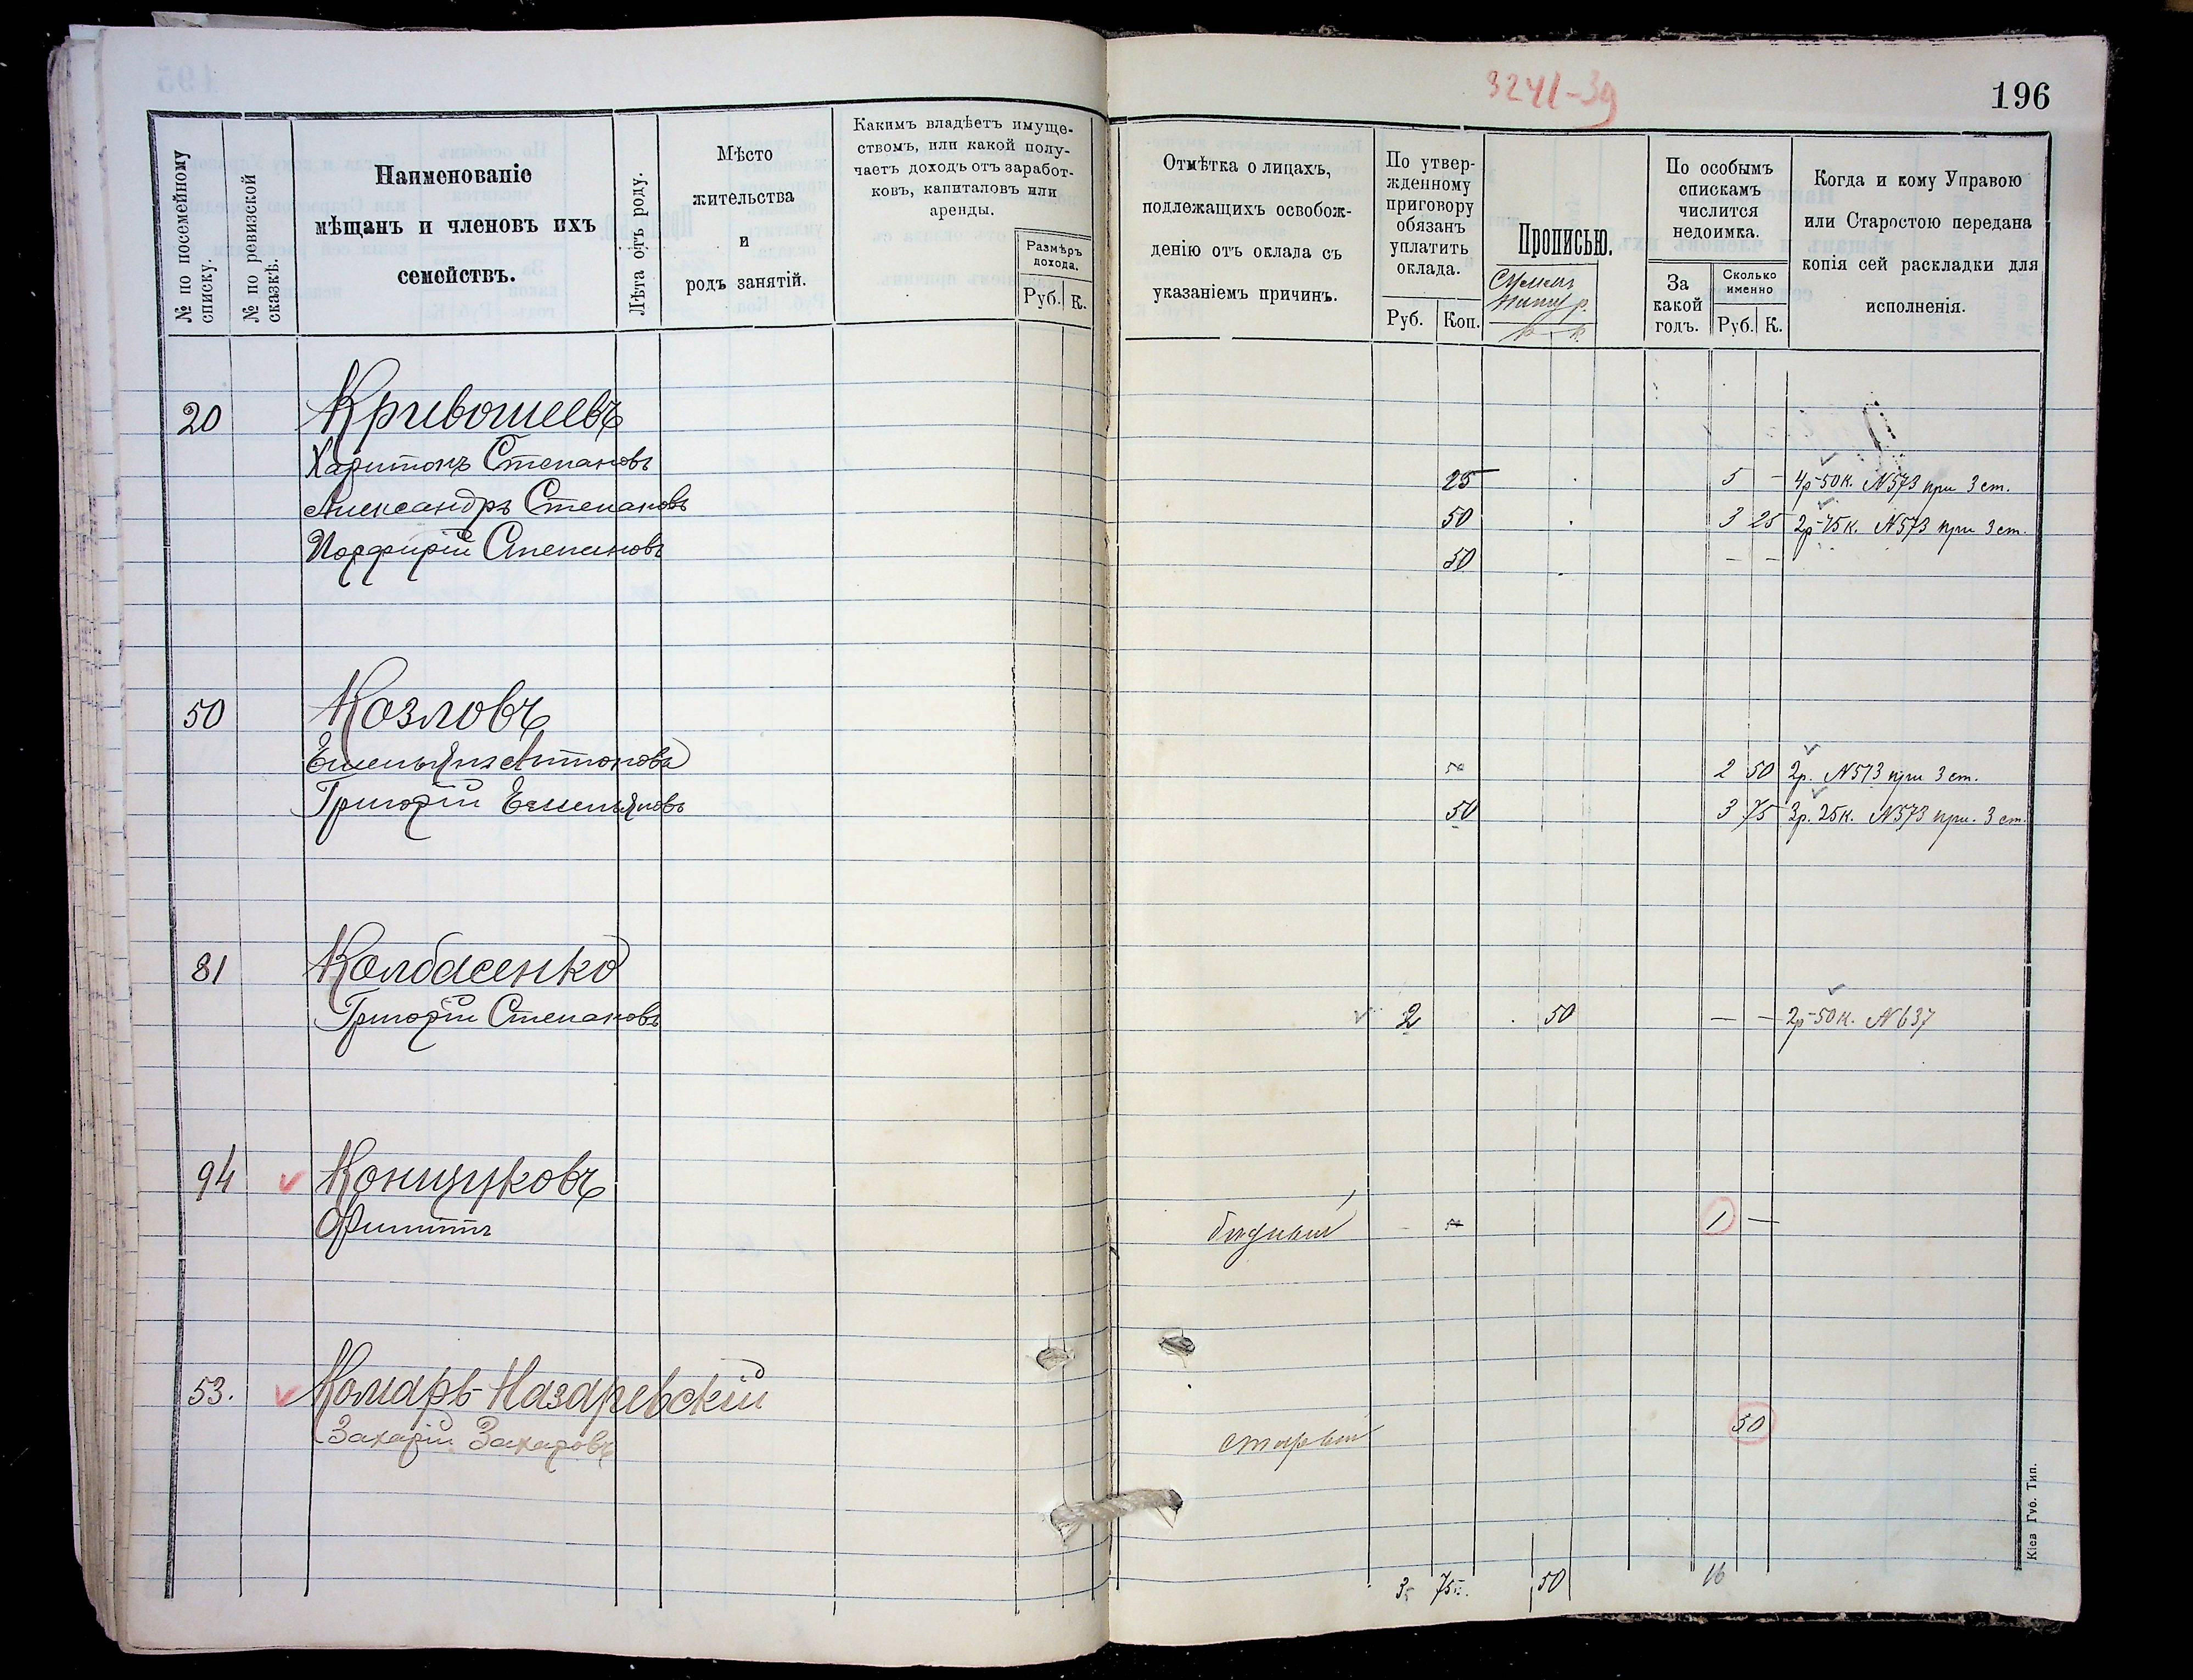 3241-39
196
№ по посемейному списку.
№ по ревизской сказкѣ.
Наименованіе
мѣщанъ и членовъ ихъ
семействъ.
Лѣта отъ роду.
Мѣсто
жительства
и
родъ занятій.
Какимъ владѣетъ имуще-
ствомъ, или какой полу-
чаетъ доходъ отъ заработ-
ковъ, капиталовъ или
аренды.
Размѣръ
дохода.
Руб. К.
Отмѣтка о лицахъ,
подлежащихъ освобож-
денію отъ оклада съ
указаніемъ причинъ.
По утвер-
жденному
приговору
обязанъ
уплатить
оклада.
Руб. Коп.
Прописью.
р. к.
По особымъ
спискамъ
числится
недоимка.
За
какой
годъ.
Сколько
именно
Руб. К.
Когда и кому Управою
или Старостою передана
копія сей раскладки для
исполненія.
20 Кривошеевъ
Харитонъ Степановъ 25 5 - 4р-50к. N573 при 3 ст.
Александръ Степановъ 50 3 25 2р-75к. N573 при 3 ст.
Порфирій Степановъ 50 - -
50 Козловъ
Емельянъ Антоновъ 50 2 50 2р. N573 при 3 ст.
Григорій Емельяновъ 50 3 75 3р. 25к. N573 при. 3 ст.
81 Колбасенко
Григорій Степановъ 2 50 - - 2р-50к. N637
94 Конщуковъ
Филиппъ бѣдный 1 -
53. Комаръ-Назаревскій
Захарій Захаровъ старый 50
3 75 50 16
Кіев. Губ. Тип.